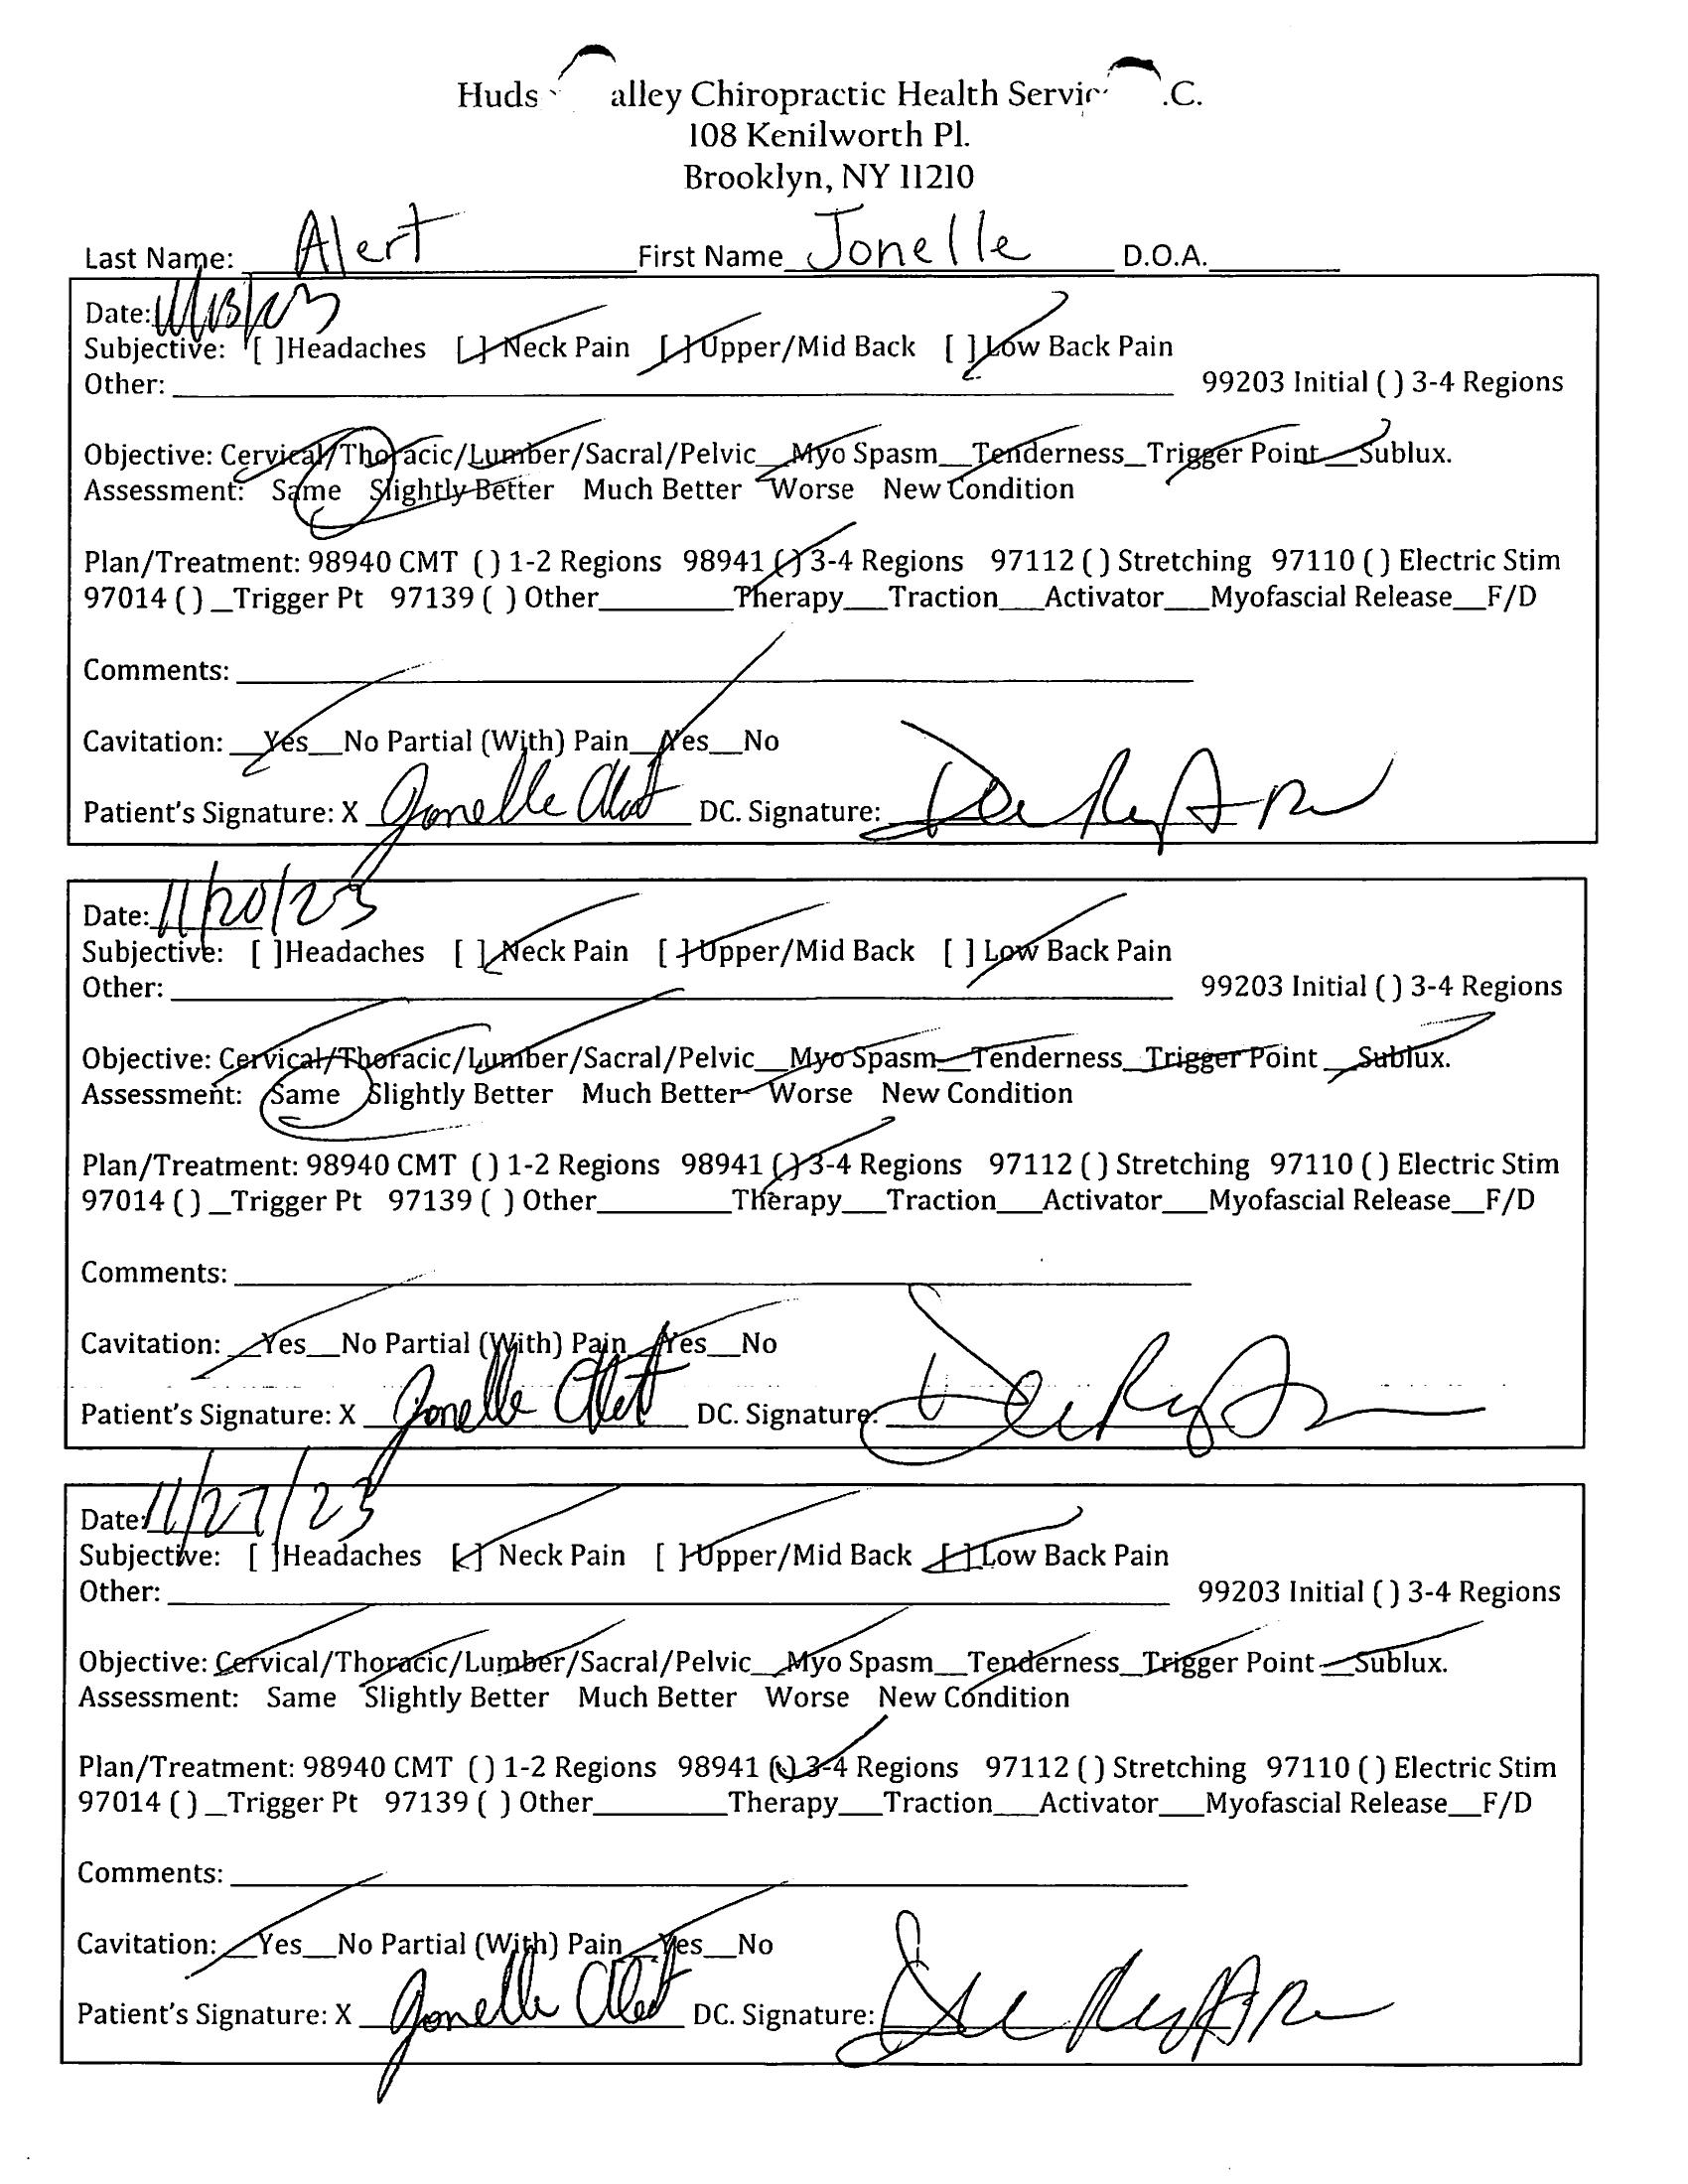 Huds alley Chiropractic Health Servic .C.
108 Kenilworth Pl.
Brooklyn, NY 11210
Last Name: Alert First Name Jonelle D.O.A.
Date: 11/13/23
Subjective: [ ]Headaches [ ] Neck Pain [ ] Upper/Mid Back [ ] Low Back Pain
Other: 99203 Initial ( ) 3-4 Regions
Objective: Cervical/Thoracic/Lumber/Sacral/Pelvic__Myo Spasm__Tenderness_Trigger Point__Sublux.
Assessment: Same Slightly Better Much Better Worse New Condition
Plan/Treatment: 98940 CMT ( ) 1-2 Regions 98941 ( ) 3-4 Regions 97112 ( ) Stretching 97110 ( ) Electric Stim
97014 ( ) _Trigger Pt 97139 ( ) Other________Therapy___Traction___Activator___Myofascial Release__F/D
Comments:
Cavitation: __Yes__No Partial (With) Pain__Yes__No
Patient's Signature: X Jonelle Alert DC. Signature:
Date: 11/20/23
Subjective: [ ]Headaches [ ] Neck Pain [ ] Upper/Mid Back [ ] Low Back Pain
Other: 99203 Initial ( ) 3-4 Regions
Objective: Cervical/Thoracic/Lumber/Sacral/Pelvic__Myo Spasm__Tenderness_Trigger Point__Sublux.
Assessment: Same Slightly Better Much Better Worse New Condition
Plan/Treatment: 98940 CMT ( ) 1-2 Regions 98941 ( ) 3-4 Regions 97112 ( ) Stretching 97110 ( ) Electric Stim
97014 ( ) _Trigger Pt 97139 ( ) Other________Therapy___Traction___Activator___Myofascial Release__F/D
Comments:
Cavitation: __Yes__No Partial (With) Pain__Yes__No
Patient's Signature: X Jonelle Alert DC. Signature:
Date: 11/27/23
Subjective: [ ]Headaches [ ] Neck Pain [ ] Upper/Mid Back [ ] Low Back Pain
Other: 99203 Initial ( ) 3-4 Regions
Objective: Cervical/Thoracic/Lumber/Sacral/Pelvic__Myo Spasm__Tenderness_Trigger Point__Sublux.
Assessment: Same Slightly Better Much Better Worse New Condition
Plan/Treatment: 98940 CMT ( ) 1-2 Regions 98941 ( ) 3-4 Regions 97112 ( ) Stretching 97110 ( ) Electric Stim
97014 ( ) _Trigger Pt 97139 ( ) Other________Therapy___Traction___Activator___Myofascial Release__F/D
Comments:
Cavitation: __Yes__No Partial (With) Pain__Yes__No
Patient's Signature: X Jonelle Alert DC. Signature: